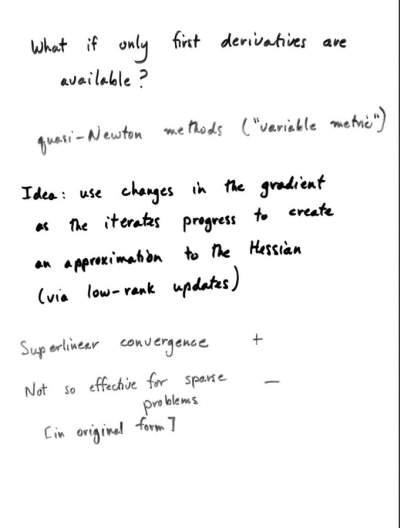 What if only first derivatives are
available?
quasi-Newton methods ("variable metric")
Idea: use changes in the gradient
as the iterates progress to create
an approximation to the Hessian
(via low-rank updates)
Superlinear convergence +
Not so effective for sparse —
problems
[in original form]